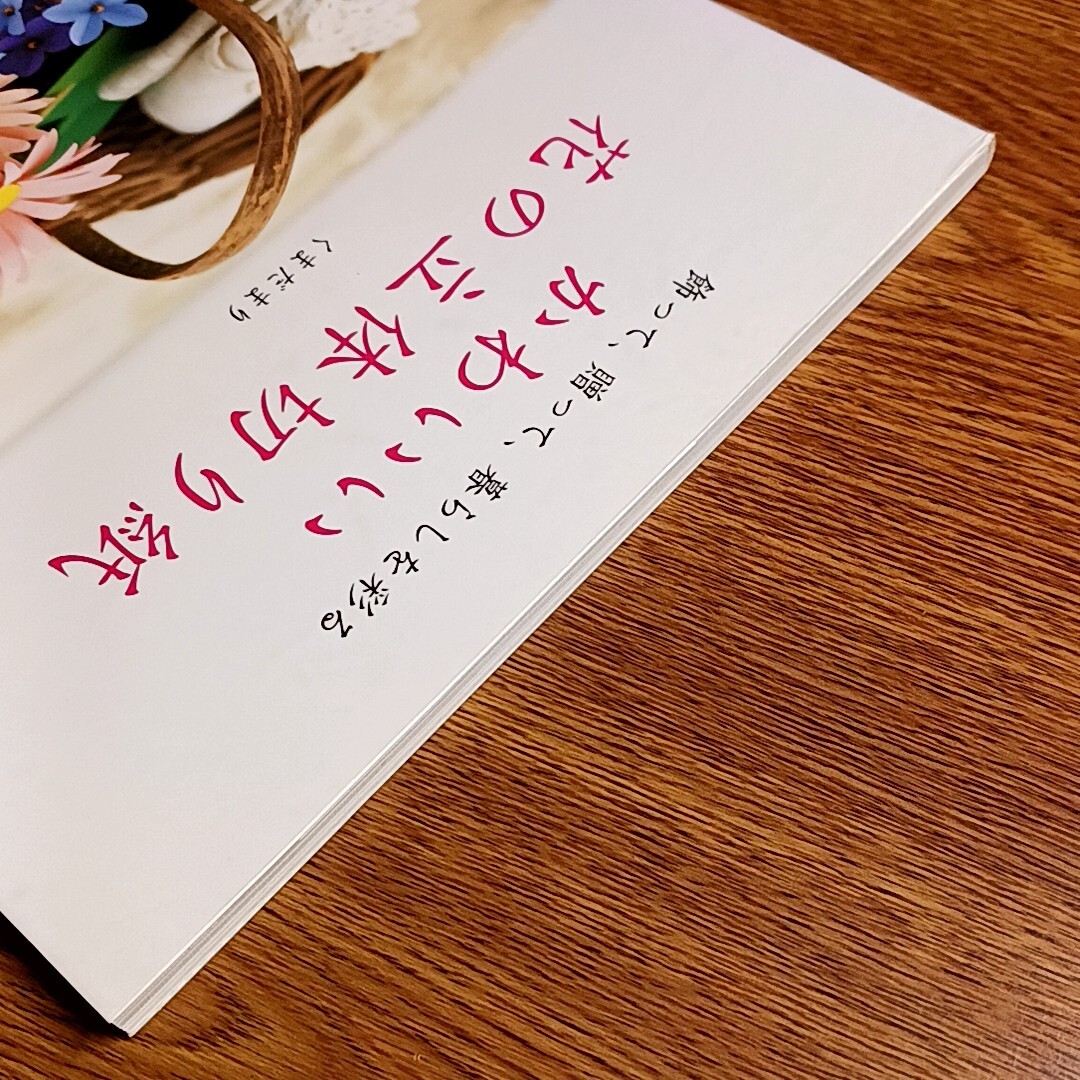 飾って、贈って、暮らしを彩る
かわいい
花の立体切り紙
くまだまり